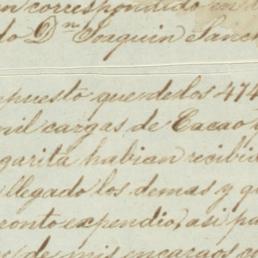 n correspondido en
do Dⁿ Joaquin Sanch
puesto que de los 474
mil cargas de Cacao
garita habian recibid
llegado los demas y q
pronto expendio, asi pa
de mis encargos